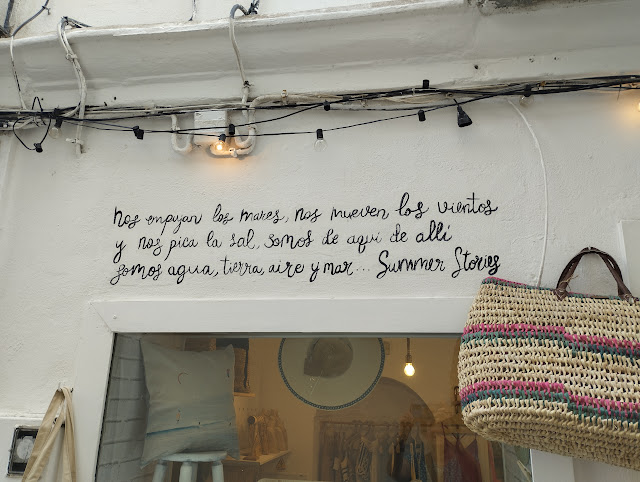 nos empujan los mares, nos mueven los vientos
y nos pica la sal, somos de aquí de allí
somos agua, tierra, aire y mar... Summer Stories